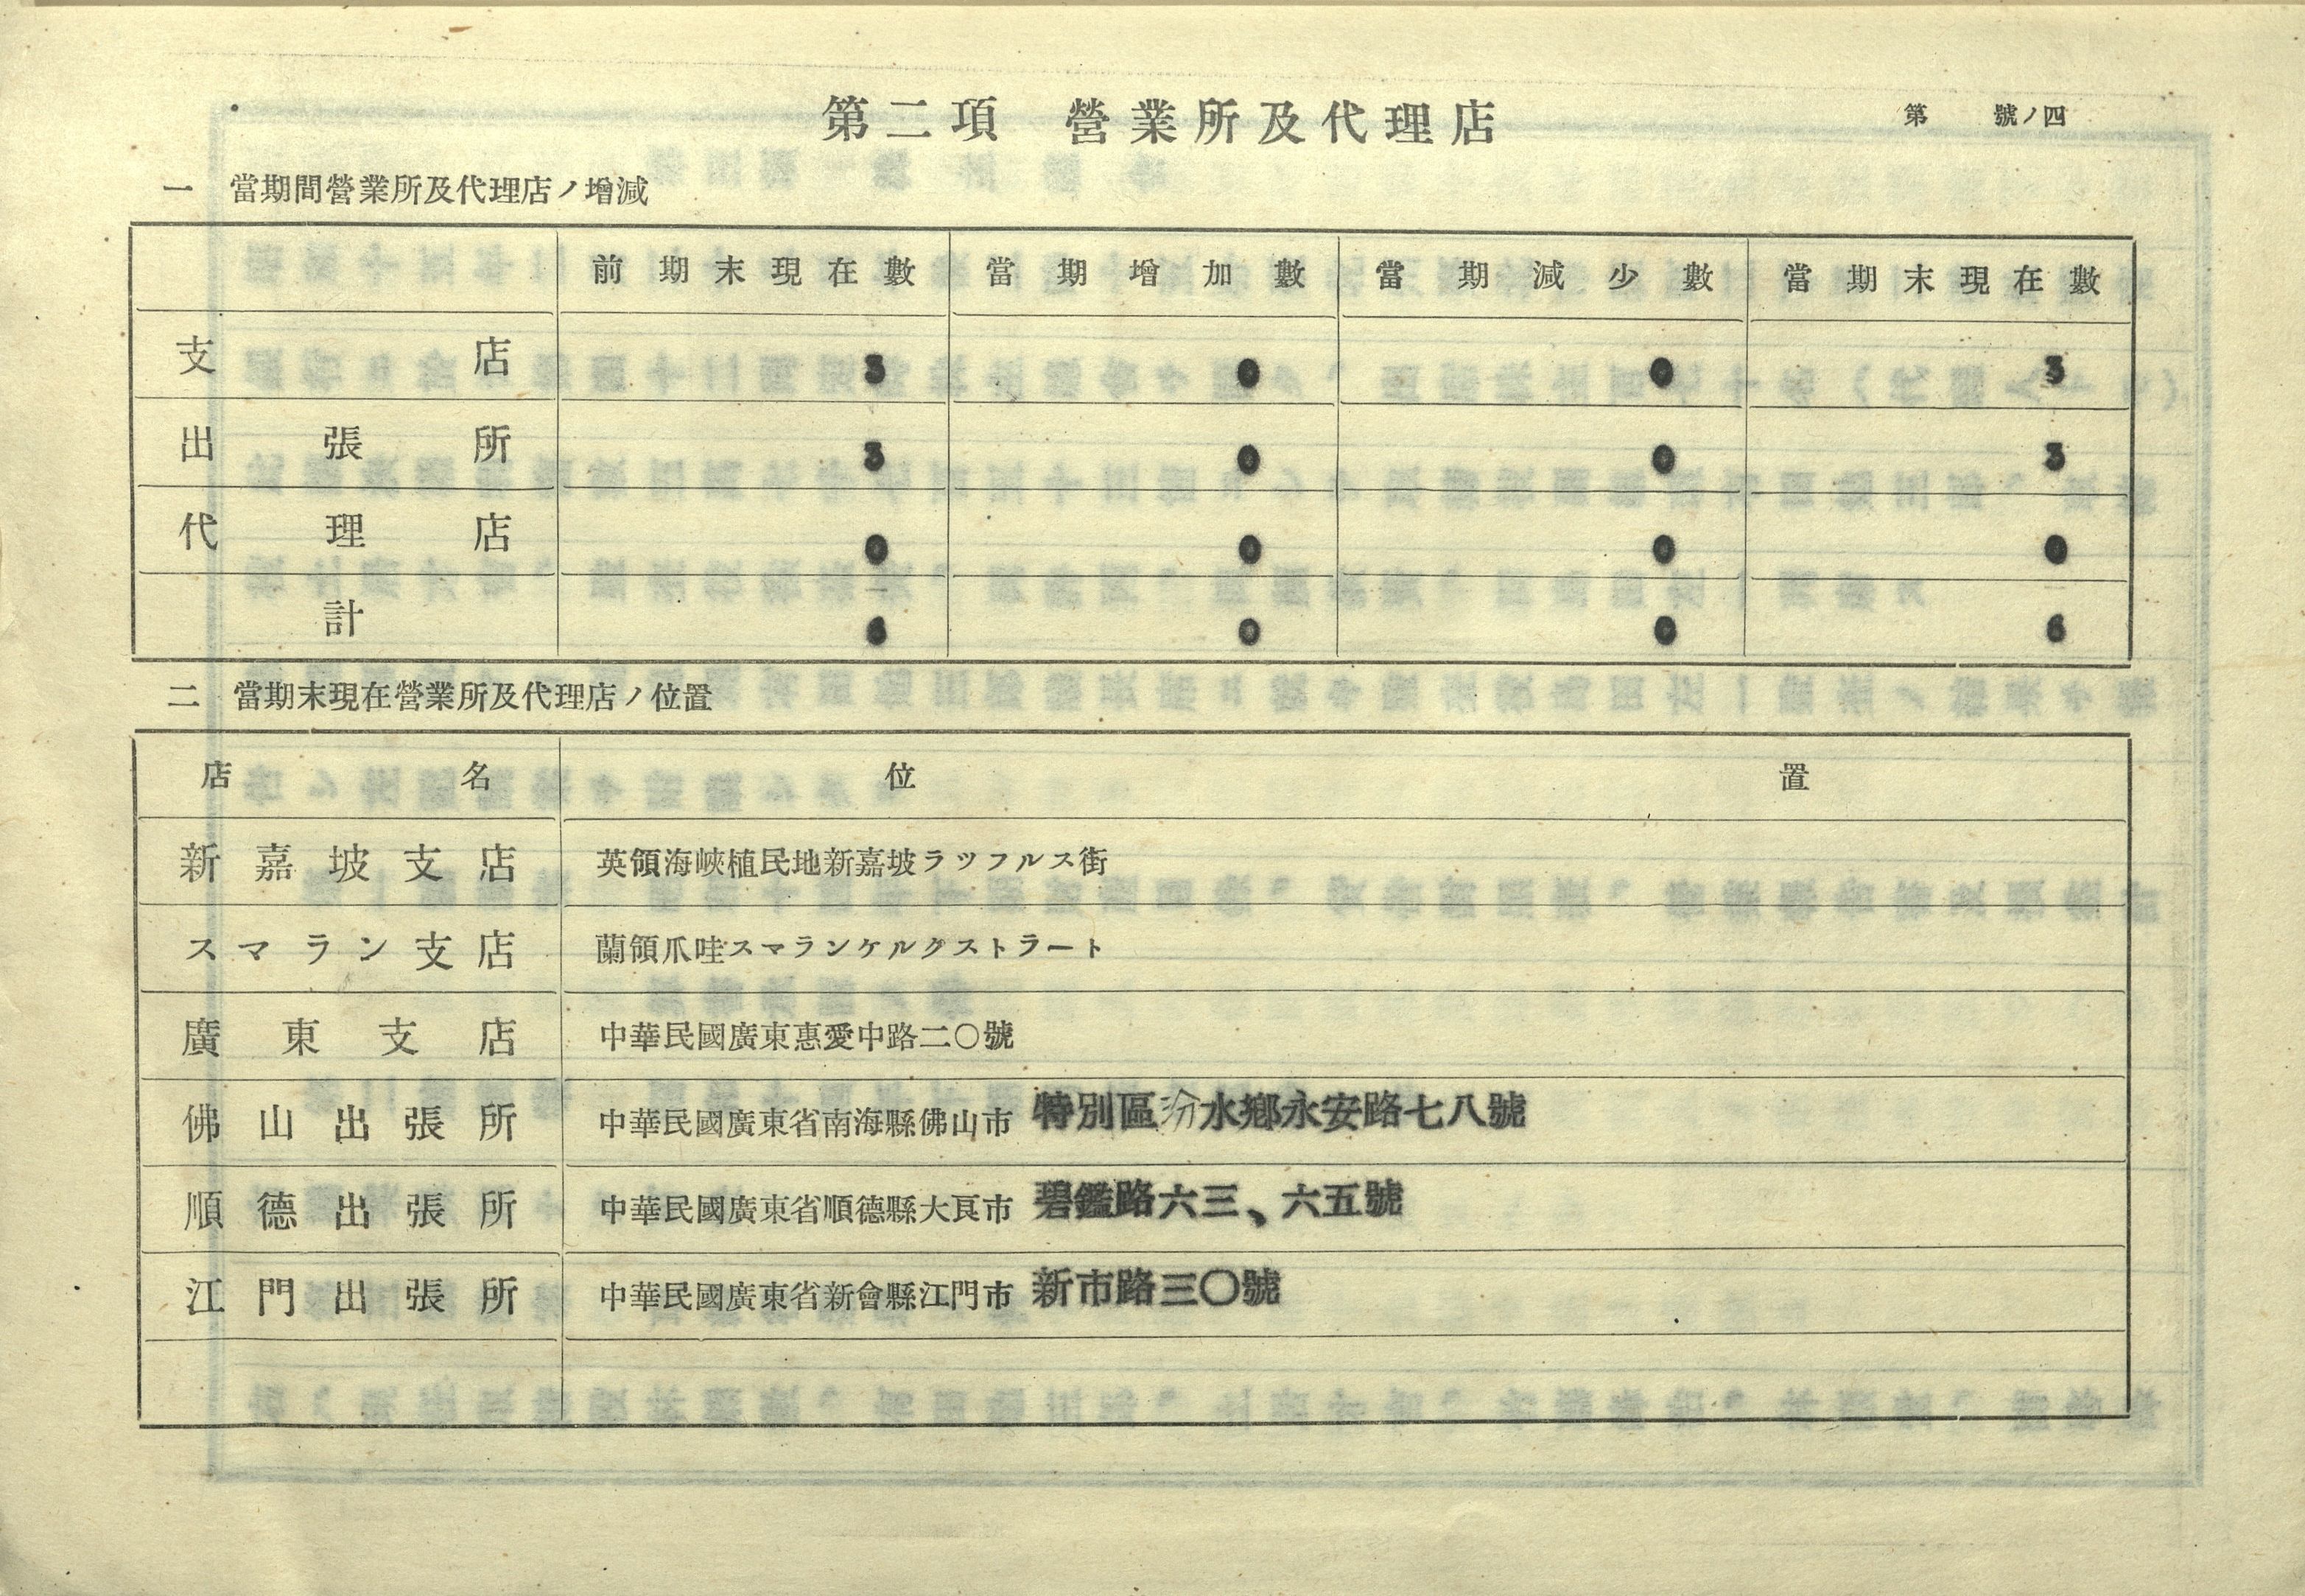 第二項　營業所及代理店
第　　號ノ四
一　當期間營業所及代理店ノ增減
前期末現在數　當期增加數　當期減少數　當期末現在數
支店　3　0　0　3
出張所　3　0　0　3
代理店　0　0　0　0
計　6　0　0　6
二　當期末現在營業所及代理店ノ位置
店名　位置
新嘉坡支店　英領海峽植民地新嘉坡ラツフルス街
スマラン支店　蘭領爪哇スマランケルクストラート
廣東支店　中華民國廣東惠愛中路二〇號
佛山出張所　中華民國廣東省南海縣佛山市　特別區汾水鄕永安路七八號
順德出張所　中華民國廣東省順德縣大良市　碧鑑路六三、六五號
江門出張所　中華民國廣東省新會縣江門市　新市路三〇號